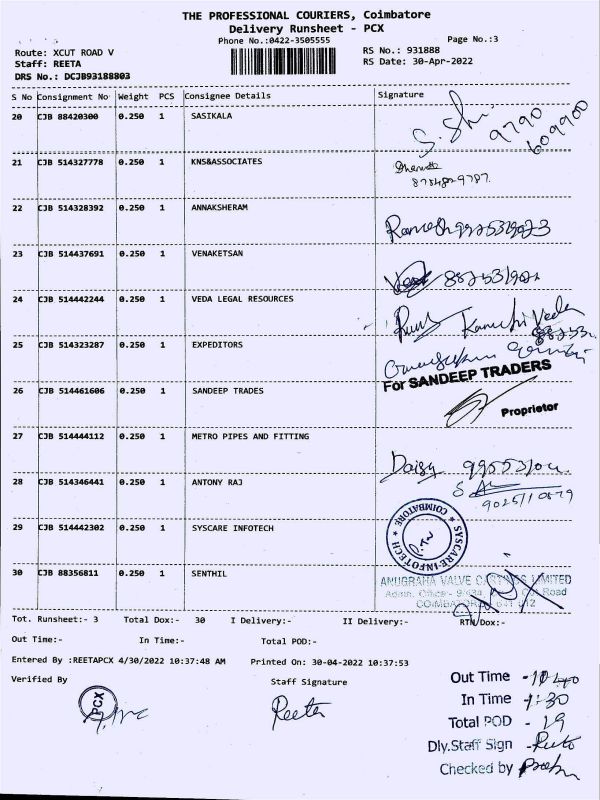 THE PROFESSIONAL COURIERS, Coimbatore
Delivery Runsheet - PCX
Phone No.:0422-3505555
Page No.:3
Route: XCUT ROAD V
RS No.: 931888
Staff: REETA
RS Date: 30-Apr-2022
DRS No.: DCJB93188803
S No Consignment No Weight PCS Consignee Details Signature
20 CJB 88420300 0.250 1 SASIKALA
9790
609900
21 CJB 514327778 0.250 1 KNS&ASSOCIATES
22 CJB 514328392 0.250 1 ANNAKSHERAM
Ramesh
23 CJB 514437691 0.250 1 VENAKETSAN
24 CJB 514442244 0.250 1 VEDA LEGAL RESOURCES
25 CJB 514323287 0.250 1 EXPEDITORS
For SANDEEP TRADERS
26 CJB 514461606 0.250 1 SANDEEP TRADES
Proprietor
27 CJB 514444112 0.250 1 METRO PIPES AND FITTING
Daisy
28 CJB 514346441 0.250 1 ANTONY RAJ
29 CJB 514442302 0.250 1 SYSCARE INFOTECH
★ COIMBATORE ★ SYSCARE INFOTECH
30 CJB 88356811 0.250 1 SENTHIL
ANUGRAHA VALVE CASTINGS LIMITED
Tot. Runsheet:- 3 Total Dox:- 30 I Delivery:- II Delivery:- RTN Dox:-
Out Time:- In Time:- Total POD:-
Entered By :REETAPCX 4/30/2022 10:37:48 AM Printed On: 30-04-2022 10:37:53
Verified By Staff Signature
PCX
Reeta
Out Time - 10 40
In Time - 1:30
Total POD - 19
Dly.Staff Sign
Checked by